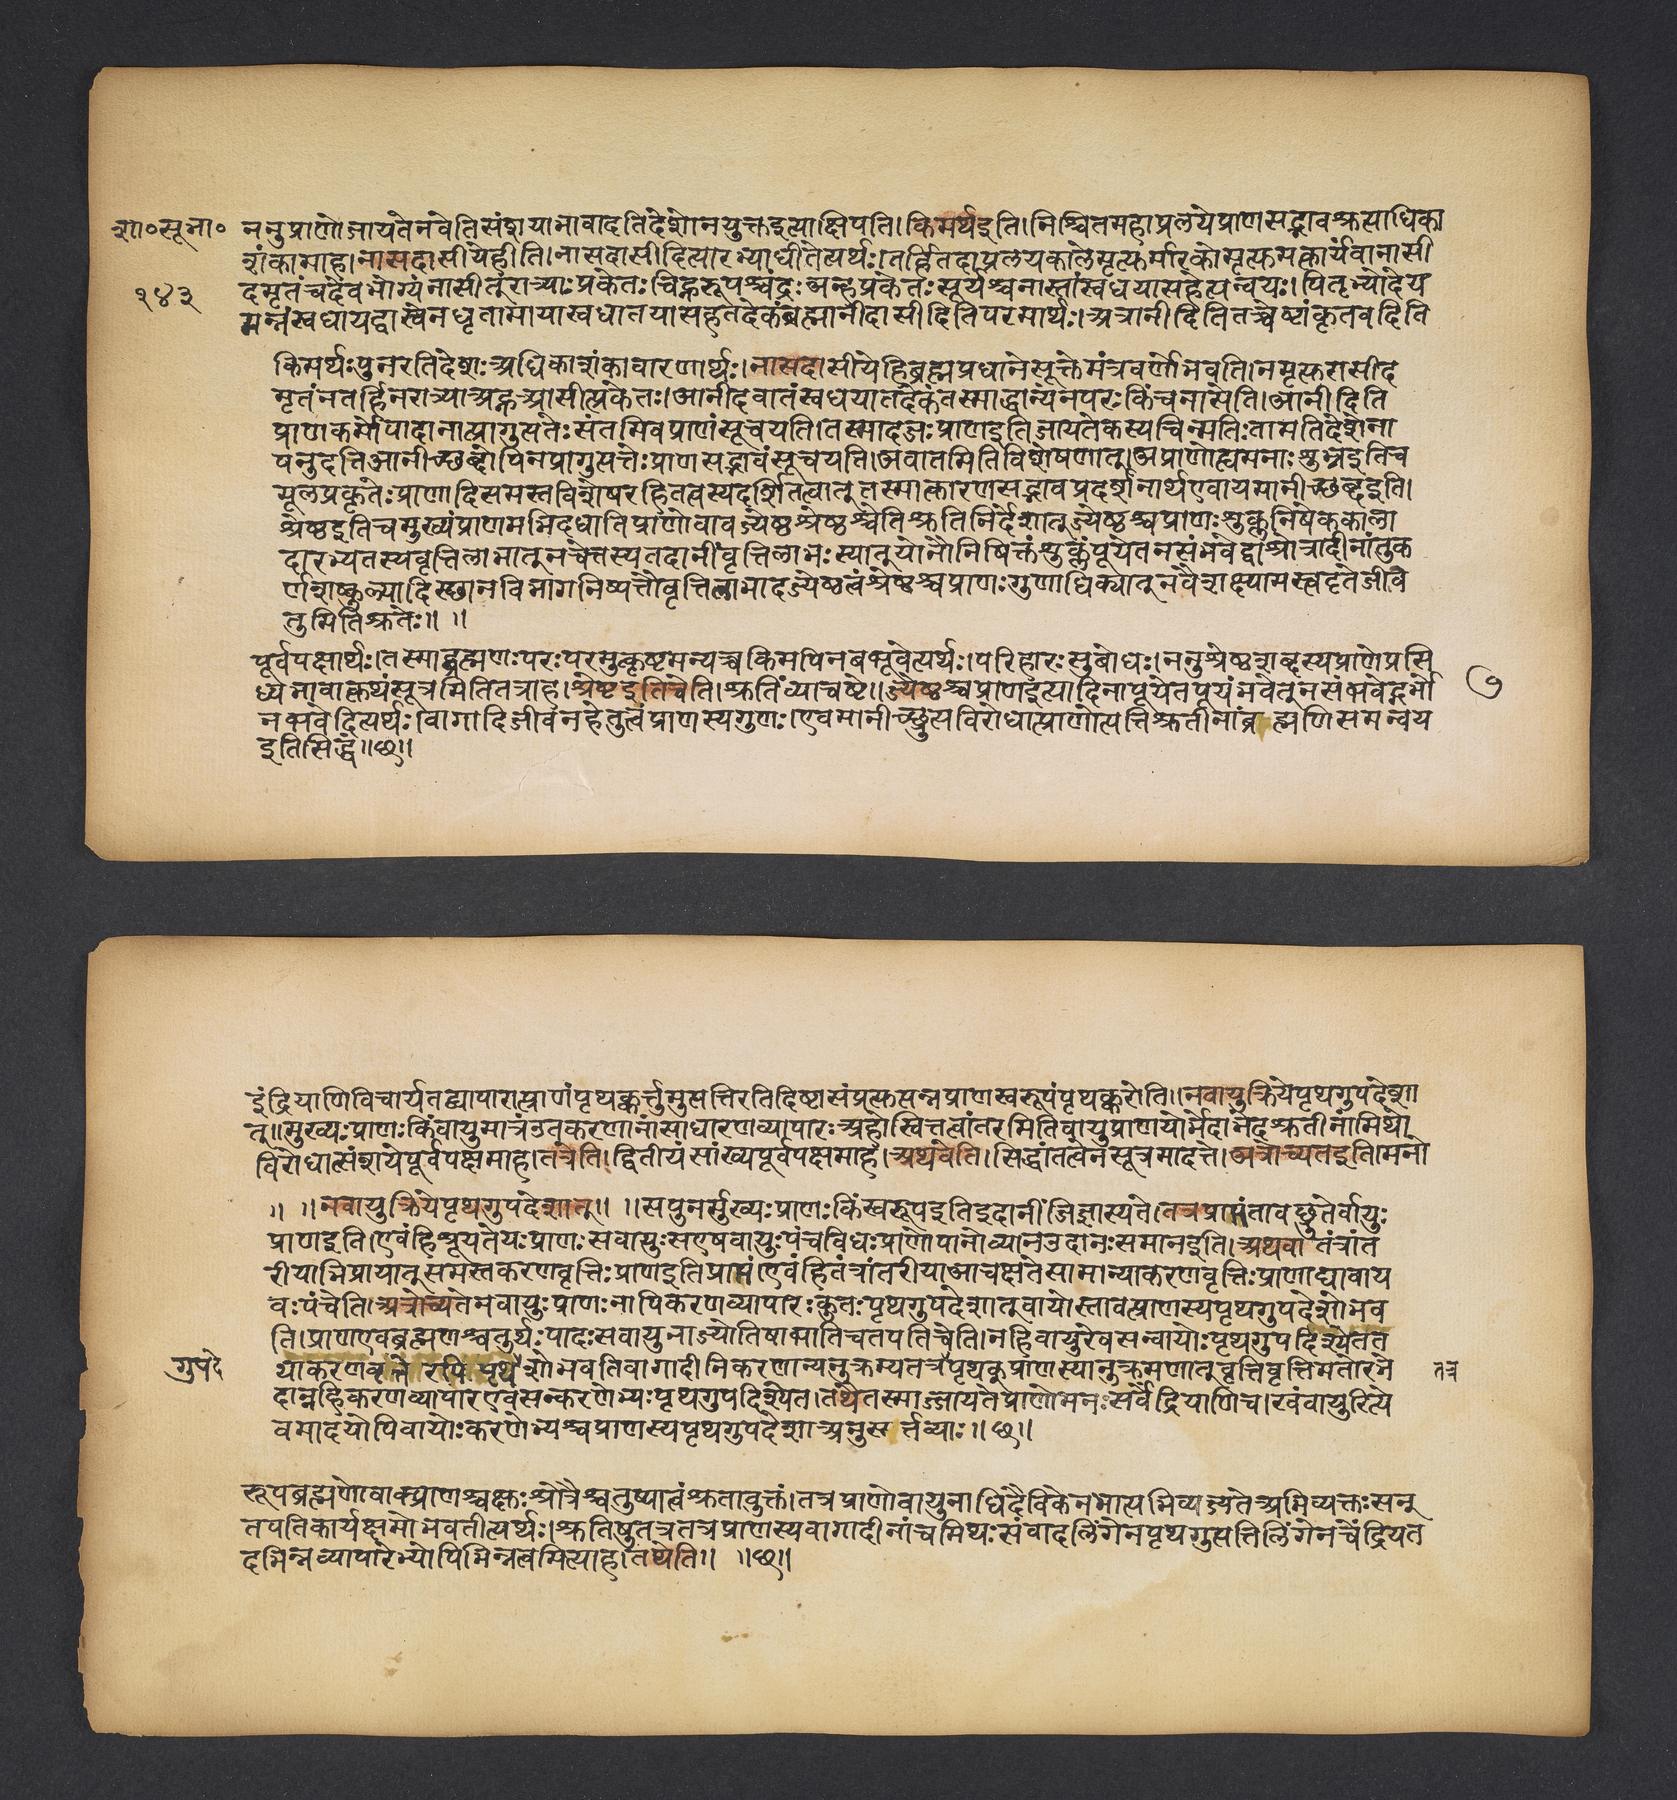 शा०सू०भा०
१४३
ननुप्राणोजायतेनवेतिसंशयाभावादतिदेशोनयुक्तइत्याक्षिपति।किमर्थइति।निश्चितमहाप्रलयेप्राणसद्भावश्रुत्याधिका
शंकामाह।नासदासीयेहीति।नासदासीदित्यारभ्याधीतेत्यर्थः।तर्हितदाप्रलयकालेमृत्युर्मारकोमृत्युमत्कार्यंवानासी
दमृतंचदेवभोग्यंनासीत्रात्र्याःप्रकेतःचिह्नरूपश्चंद्रःअन्हःप्रकेतःसूर्यश्चनास्तांस्वधयासहेत्यन्वयः।पितृभ्योदेय
मन्नंस्वधायद्वास्वेनधृतामायास्वधातयासहतदेकंब्रह्मानीदासीदितिपरमार्थः।अत्रानीदितितच्चेष्टांकृतवदिति
किमर्थःपुनरतिदेशःअधिकाशंकावारणार्थः।नासदासीयेहिब्रह्मप्रधानेसूक्तेमंत्रवर्णोभवति।नमृत्युरासीद
मृतंनतर्हिनरात्र्याअह्नआसीत्प्रकेतः।आनीदवातंस्वधयातदेकंतस्माद्धान्यंनपरःकिंचनासेति।आनीदिति
प्राणकर्मोपादानात्प्रागुत्पत्तेःसंतमिवप्राणंसूचयति।तस्मादजःप्राणइतिजायतेकस्यचिन्मतिःतामतिदेशेना
पनुदतिआनीच्छब्दोपिनप्रागुत्पत्तेःप्राणसद्भावंसूचयति।अवातमितिविशेषणात्।अप्राणोह्यमनाःशुभ्रइतिच
मूलप्रकृतेःप्राणादिसमस्तविशेषरहितत्वस्यदर्शितत्वात्तस्मात्कारणसद्भावप्रदर्शनार्थएवायमानीच्छब्दइति।
श्रेष्ठइतिचमुख्यंप्राणमभिदधातिप्राणोवावज्येष्ठश्रेष्ठश्चेतिश्रुतिनिर्देशात्ज्येष्ठश्चप्राणःशुक्लनिषेककाला
दारभ्यतस्यवृत्तिलाभात्नचेत्तस्यतदानींवृत्तिलाभःस्यात्योनौनिषिक्तंशुक्लंपूयेतनसंभवेद्वाश्रोत्रादीनांतुक
र्णशष्कुल्यादिस्थानविभागनिष्पत्तौवृत्तिलाभादज्येष्ठत्वंश्रेष्ठश्चप्राणःगुणाधिक्यात्नवैशक्ष्यामस्त्वदृतेजीवि
तुमितिश्रुतेः॥ ॥
पूर्वपक्षार्थः।तस्माद्ब्रह्मणःपरःपरमुत्कृष्टमन्यच्चकिमपिनबभूवेत्यर्थः।परिहारःसुबोधः।ननुश्रेष्ठशब्दस्यप्राणेप्रसि
ध्यभावात्कथंसूत्रमितितत्राह।श्रेष्टइतिचेति।श्रुतिंव्याचष्टे॥ज्येष्ठश्चप्राणइत्यादिनापूयेतपूयंभवेत्नसंभवेद्गर्भो
नभवेदित्यर्थः।वागादिजीवनहेतुत्वंप्राणस्यगुणः।एवमानीच्छ्रुत्यविरोधात्प्राणोत्पत्तिश्रुतीनांब्रह्मणिसमन्वय
इतिसिद्धं॥छ॥
इंद्रियाणिविचार्यतद्व्यापारात्प्राणंपृथक्कर्त्तुमुत्पत्तिरतिदिष्टासंप्रत्युत्पन्नप्राणस्वरूपंपृथक्करोति॥नवायुक्रियेपृथगुपदेशा
त्॥मुख्यःप्राणःकिंवायुमात्रंउतकरणानांसाधारणव्यापारःअहोस्वित्तत्वांतरमितिवायुप्राणयोर्भेदाभेदश्रुतीनांमिथो
विरोधात्संशयेपूर्वपक्षमाह।तत्रेति।द्वितीयंसांख्यपूर्वपक्षमाह।अथवेति।सिद्धांतत्वेनसूत्रमादत्ते।अत्रोच्यतइति।मनो
॥ ॥नवायुक्रियेपृथगुपदेशात्॥ ॥सपुनर्मुख्यःप्राणःकिंस्वरूपइतिइदानींजिज्ञास्यते।तत्रप्राप्तंतावच्छ्रुतेर्वायुः
प्राणइति।एवंहिश्रूयतेयःप्राणःसवायुःसएषवायुःपंचविधःप्राणोपानोव्यानउदानःसमानइति।अथवातंत्रांत
रीयाभिप्रायात्समस्तकरणवृत्तिःप्राणइतिप्राप्तं।एवंहितंत्रांतरीयाआचक्षतेसामान्याकरणवृत्तिःप्राणाद्यावाय
वःपंचेति।अत्रोच्यतेनवायुःप्राणःनापिकरणव्यापारःकुतःपृथगुपदेशात्वायोस्तावत्प्राणस्यपृथगुपदेशोभव
ति।प्राणएवब्रह्मणश्चतुर्थःपादःसवायुनाज्योतिषाभातिचतपतिचेति।नहिवायुरेवसन्वायोःपृथगुपदिश्येतत
गुपदे
थाकरणवृत्तेरपिपृथशोभवतिवागादीनिकरणान्यनुक्रम्यतत्रपृथक्प्राणस्यानुक्रमणात्वृत्तिवृत्तिमतोरभे
तत्र
दान्नहिकरणव्यापारएवसन्करणेभ्यःपृथगुपदिश्येत।तथैतस्माज्जायतेप्राणोमनःसर्वेंद्रियाणिच।खंवायुरित्ये
वमादयोपिवायोःकरणेभ्यश्चप्राणस्यपृथगुपदेशाअनुसर्त्तव्याः॥छ॥
रूपब्रह्मणोवाक्प्राणश्चक्षुःश्रोत्रैश्चतुष्पात्त्वंश्रुतावुक्तं।तत्रप्राणोवायुनाधिदैविकेनभात्यभिव्यज्यतेअभिव्यक्तःसन्
तपतिकार्यक्षमोभवतीत्यर्थः।श्रुतिषुतत्रतत्रप्राणस्यवागादीनांचमिथःसंवादलिंगेनपृथगुत्पत्तिलिंगेनचेंद्रियत
दभिन्नव्यापारेभ्योपिभिन्नत्वमित्याह।तथेति॥ ॥छ॥